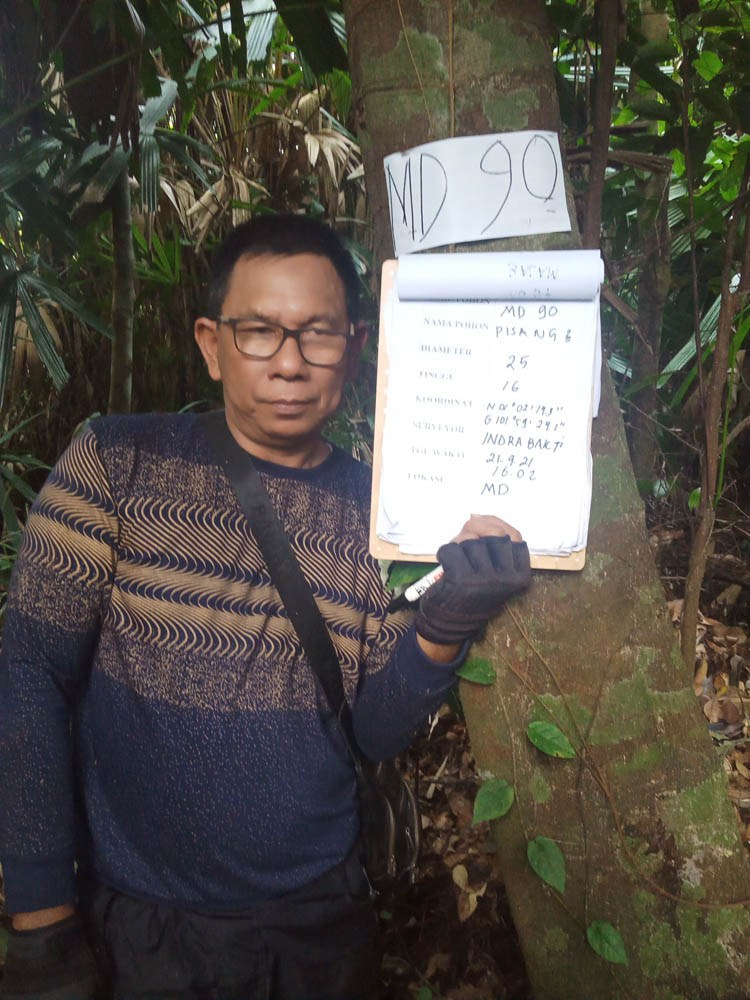 MD 90
MD 90
NAMA POHON PISANG 2
DIAMETER 25
TINGGI 16
KOORDINAT N 01°02'19.3"
G 101°59'29.1"
SURVEYOR INDRA BAKTI
TGL/WAKTU 21.9.21
16.02
LOKASI MD